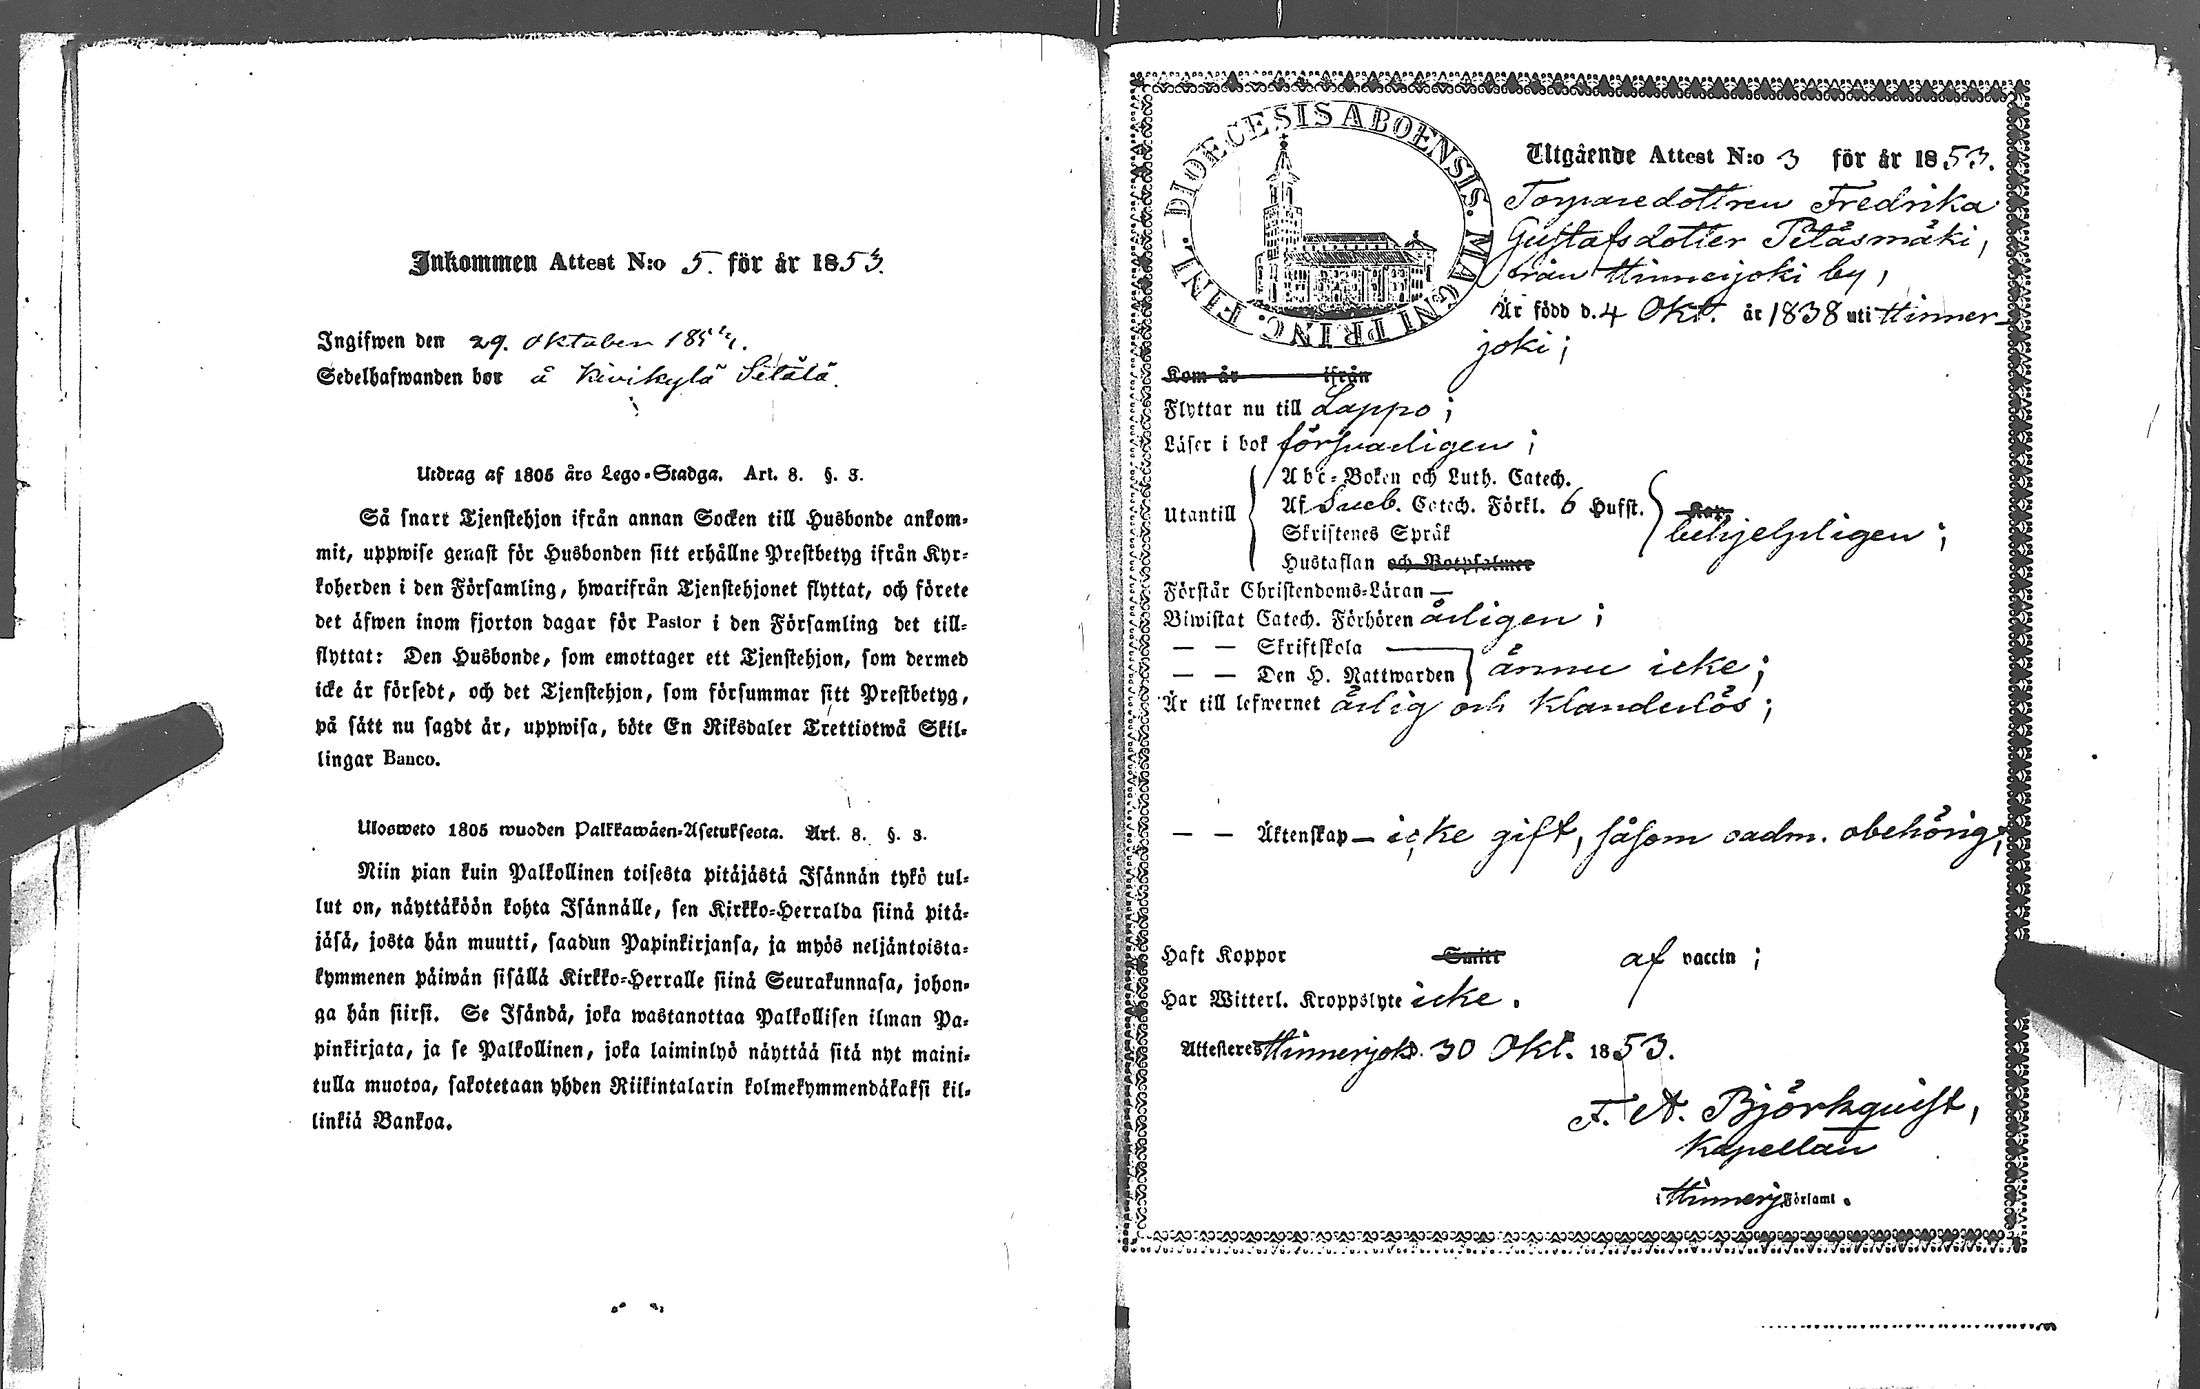 Inkommen Attest N:o 5. för år 1853.
Ingifwen den 29. oktober 185
Sedelhafwanden bor å Kivikylä Sitälä.
Utdrag af 1805 års Lego-Stadga. Art. 8. §. 3.
Så snart Tjenstehjon ifrån annan Socken till Husbonde ankom-
mit, uppwise genast för Husbonden sitt erhållne Prestbetyg ifrån Kyr-
koherden i den Församling, hwarifrån Tjenstehjonet flyttat, och förete
det äfwen inom fjorton dagar för Pastor i den Församling det till-
flyttat: Den Husbonde, som emottager ett Tjenstehjon, som dermed
icke är försedt, och det Tjenstehjon, som försummar sitt Prestbetyg,
på sätt nu sagdt är, uppwisa, böte En Riksdaler Trettiotwå Skil-
lingar Banco.
Ulosweto 1805 wuoden Palkkawäen-Asetuksesta. Art. 8. §. 3.
Niin pian kuin Palkollinen toisesta pitäjästä Isännän tykö tul-
lut on, näyttäköön kohta Isännälle, sen Kirkko-Herralda siinä pitä-
jäsä, josta hän muutti, saadun Papinkirjansa, ja myös neljäntoista-
kymmenen päiwän sisällä Kirkko-Herralle siinä Seurakunnasa, johon-
ga hän siirsi. Se Isändä, joka wastanottaa Palkollisen ilman Pa-
pinkirjata, ja se Palkollinen, joka laiminlyö näyttää sitä nyt maini-
tulla muotoa, sakotetaan yhden Riikintalarin kolmekymmendäkaksi kil-
linkiä Bankoa.
DIOECESIS ABOENSIS. MAGNI PRINC. FINL.
Utgående Attest N:o 3 för år 1853.
Torparedottren Fredrika
Gustafsdotter Petäsmäki,
från Hinnerjoki by,
Är född d. 4 Okt. år 1838 uti Hinner-
joki;
Kom år ifrån
Flyttar nu till Lappo;
Läser i bok försvarligen;
Abc-Boken och Luth. Catech.
Utantill Af Sveb. Catech. Förkl. 6 Hufst.
Skriftenes Språk behjelpligen;
Hustaflan och Botpsalmer
Förstår Christendoms-Läran —
Biwistat Catech. Förhören årligen;
— — Skriftskola
— — Den H. Nattwarden ännu icke;
Är till lefwernet ärlig och klanderlös;
— — Äktenskap — icke gift, såsom oadm. obehörig;
Haft Koppor af vaccin;
Har Witterl. Kroppslyte icke.
Attesteres Hinnerjoki d. 30 Okt. 1853.
F. A. Björkquist,
Kapellan
i Hinnerj. Församl.